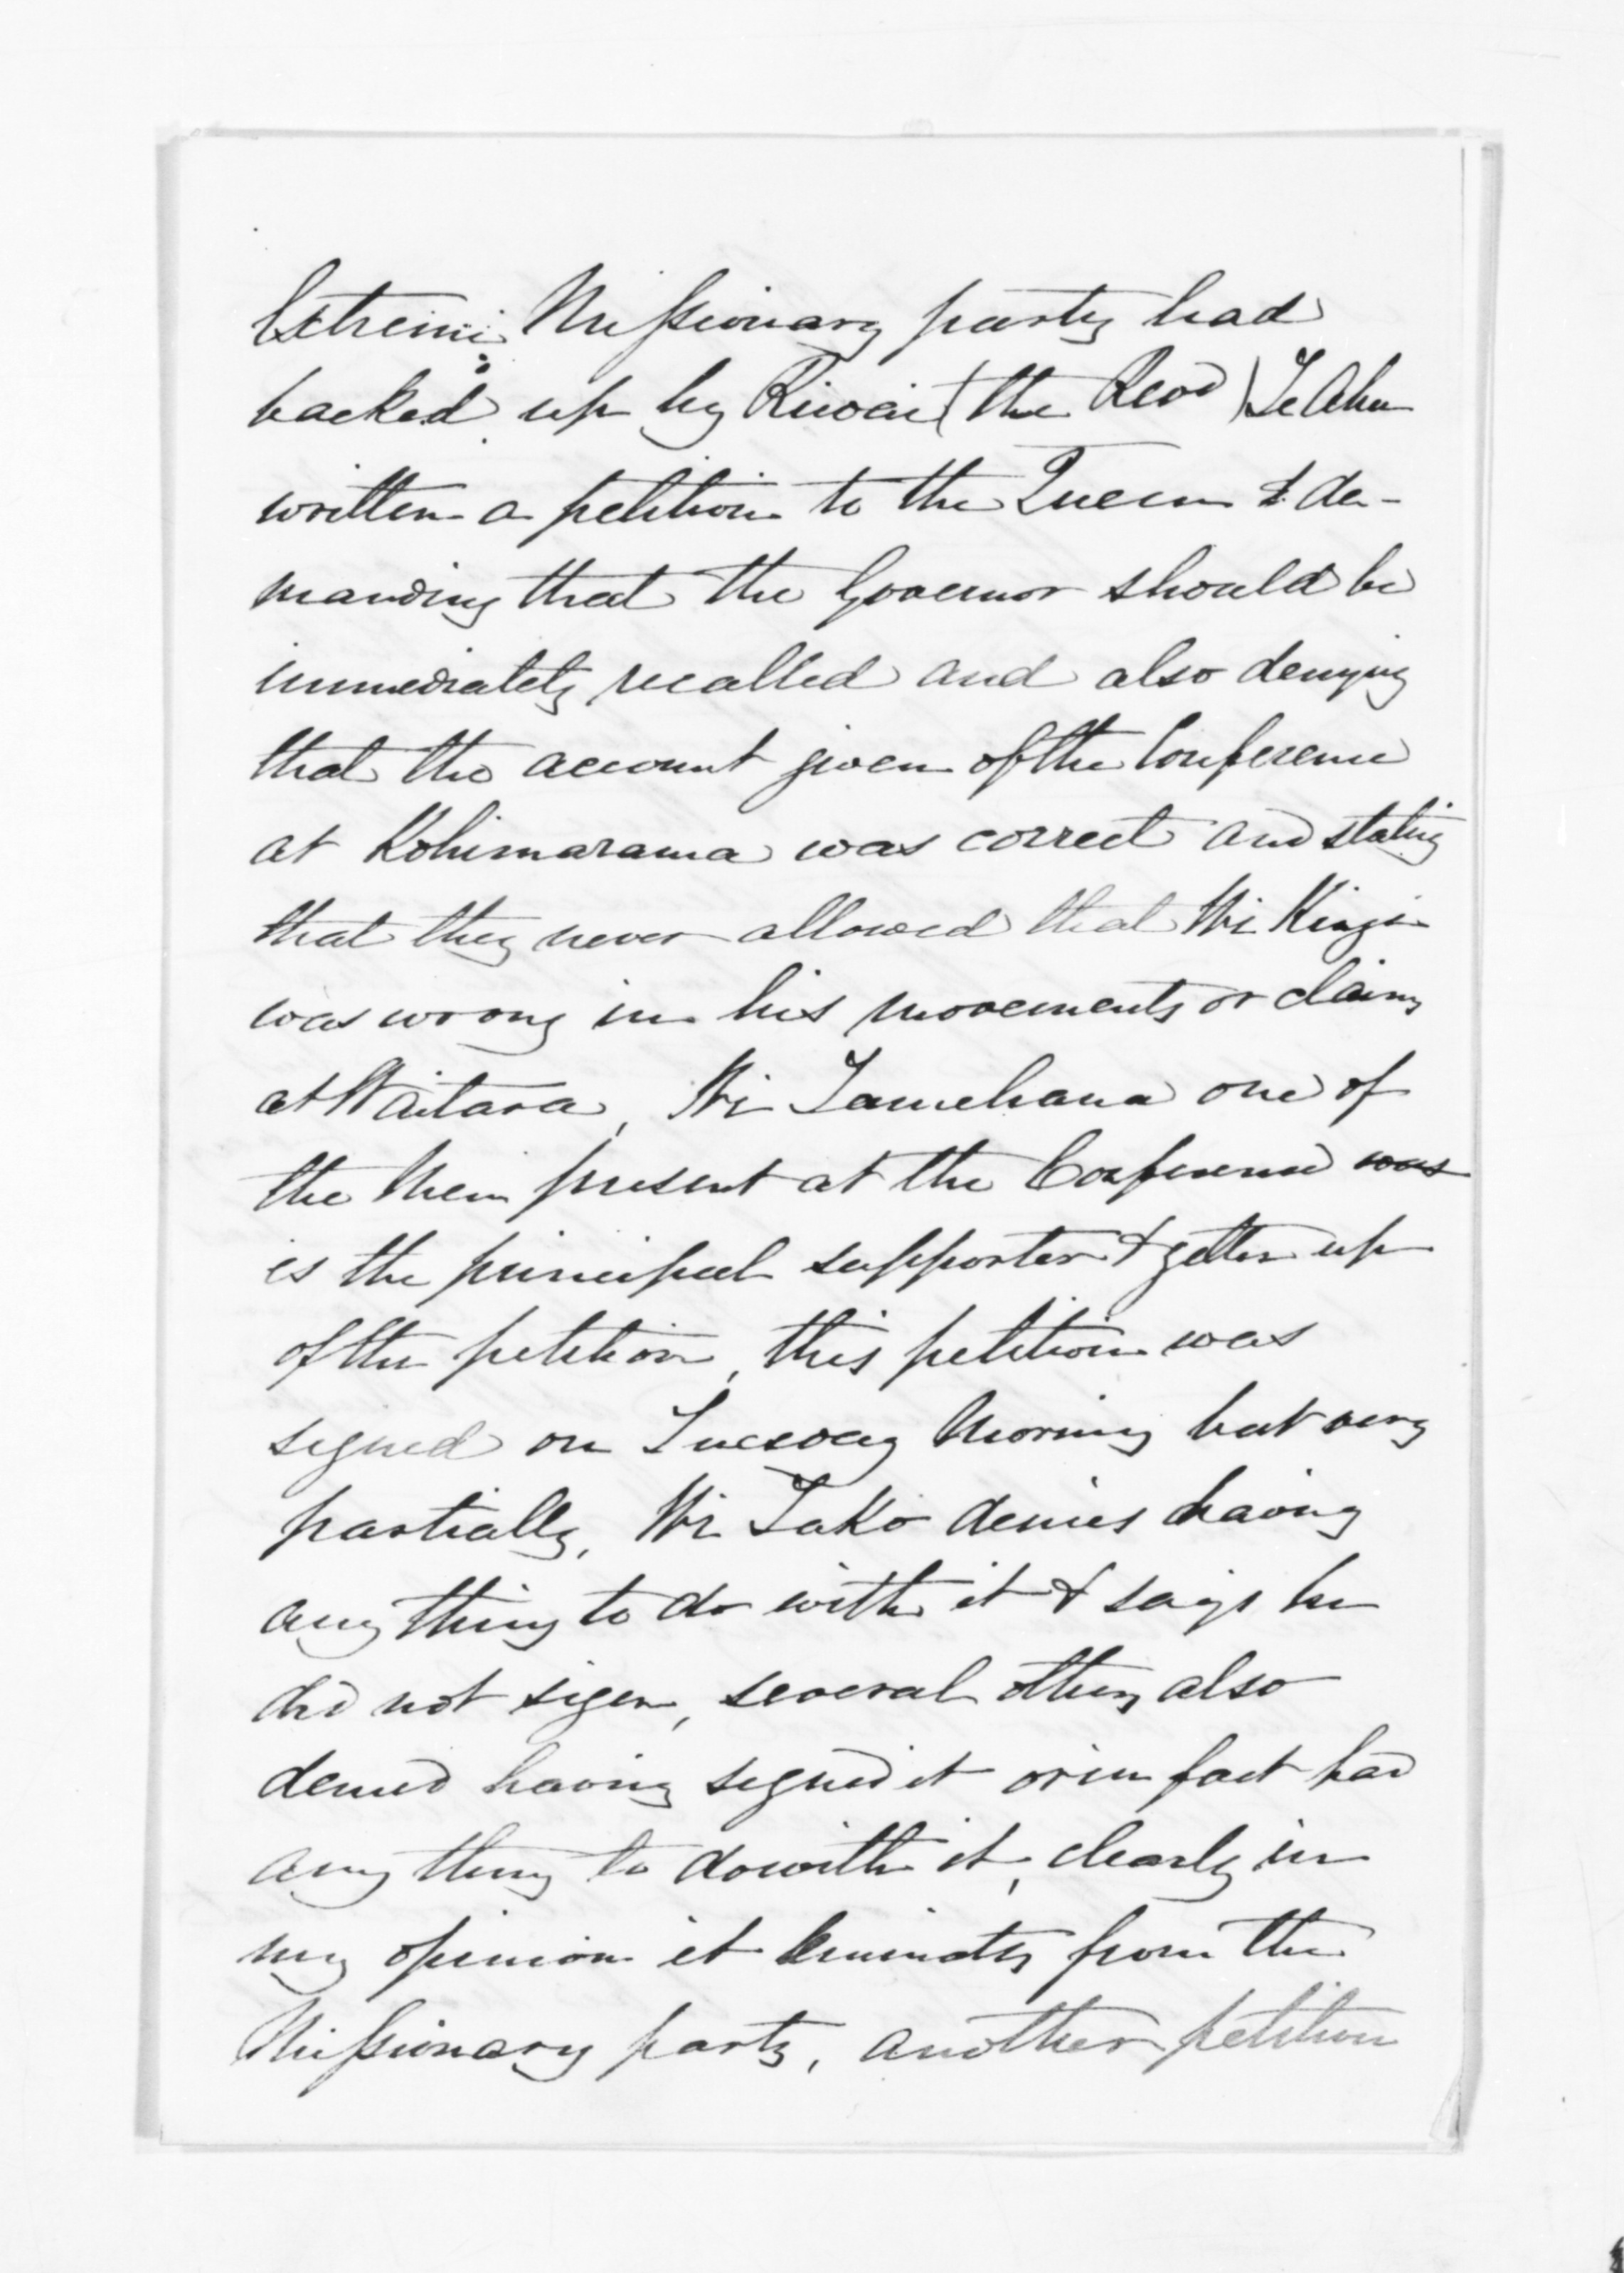 Extreme Missionary party had
backed up by Riwai (the Revd) Te Ahu
written a petition to the Queen & de-
manding that the Governor should be
immediately recalled and also denying
that the account given of the Conference
at Kohimarama was correct and stating
that they never allowed that Wi Kingi
was wrong in his movements or claims
at Waitara, Wi Tamehana one of
the Men present at the Conference was
is the principal supporter & getter up
of the petition, this petition was
signed on Tuesday Morning but very
partially, Wi Tako denies having
any thing to do with it & says he
did not sign, several others also
denied having signed it or in fact had
any thing to do with it, clearly in
my opinion it eminates from the
Missionary party, another petition